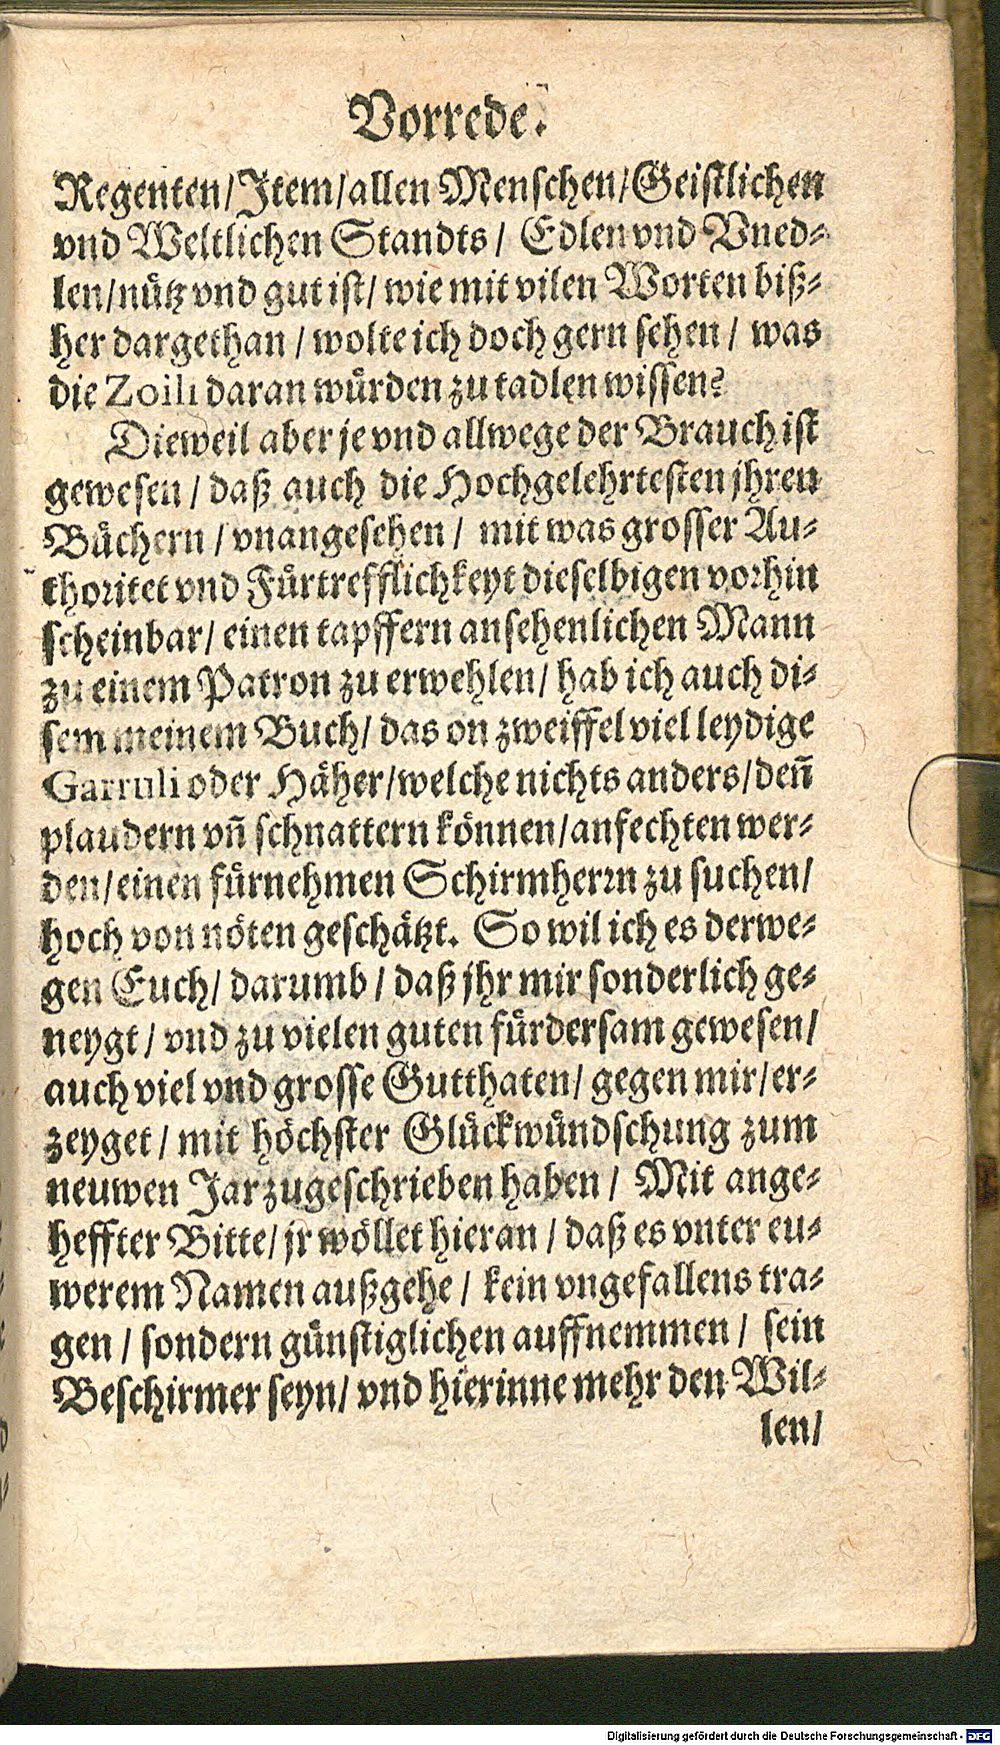 Vorrede.
Regenten/Item/allen Menschen/Geistlichen
vnd Weltlichen Standts/ Edlen vnd Vned-
len/nütz vnd gut ist/ wie mit vilen Worten biß-
her dargethan / wolte ich doch gern sehen / was
die Zoili daran würden zu tadlen wissen?
Dieweil aber je vnd allwege der Brauch ist
gewesen / daß auch die Hochgelehrtesten jhren
Büchern / vnangesehen / mit was grosser Au-
thoritet vnd Fürtrefflichkeyt dieselbigen vorhin
scheinbar/ einen tapffern ansehenlichen Mann
zu einem Patron zu erwehlen/ hab ich auch di-
sem meinem Buch/ das on zweiffel viel leydige
Garruli oder Häher/welche nichts anders/deñ
plaudern vñ schnattern können/anfechten wer-
den/einen fürnehmen Schirmherrn zu suchen/
hoch von nöten geschätzt. So wil ich es derwe-
gen Euch/ darumb / daß jhr mir sonderlich ge-
neygt / vnd zu vielen guten fürdersam gewesen/
auch viel vnd grosse Gutthaten/ gegen mir/er-
zeyget / mit höchster Glückwündschung zum
neuwen Jar zugeschrieben haben / Mit ange-
heffter Bitte/ jr wöllet hieran / daß es vnter eu-
werem Namen außgehe / kein vngefallens tra-
gen / sondern günstiglichen auffnemmen / sein
Beschirmer seyn/ vnd hierinne mehr den Wil-
len/
Digitalisierung gefördert durch die Deutsche Forschungsgemeinschaft - DFG